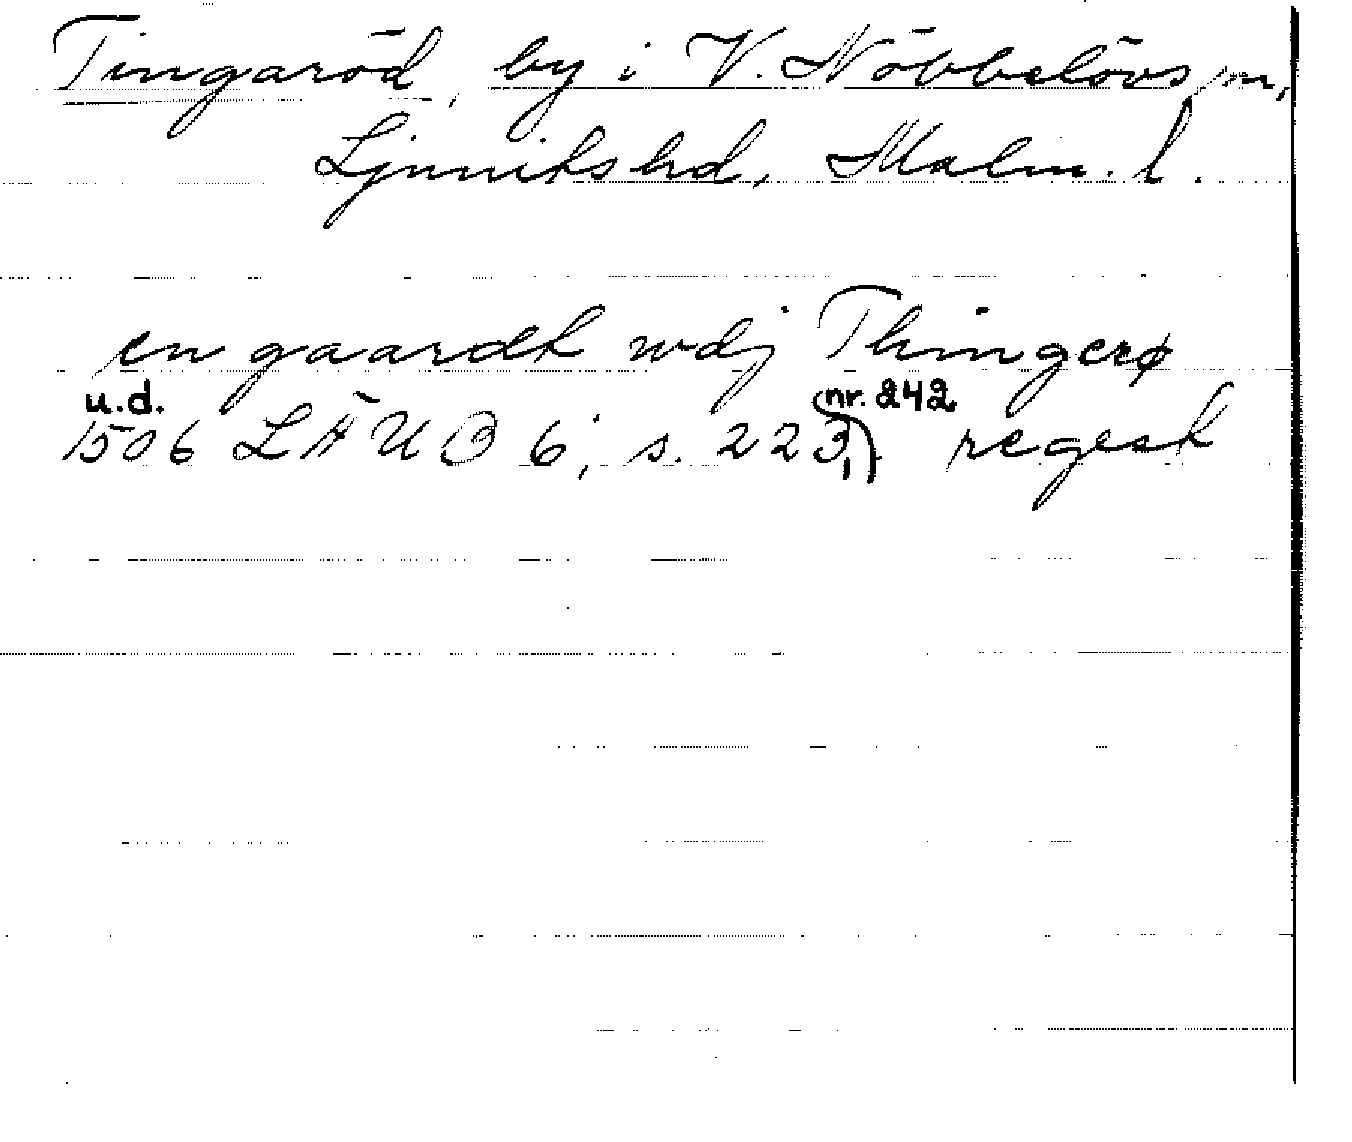 Tingaröd, by i V. Nöbbelövs sn,
Ljunits hd, Malm. l.
en gaardt wdj Thingerø
u.d. nr. 242
1506 LÄUB 6, s. 223, regest